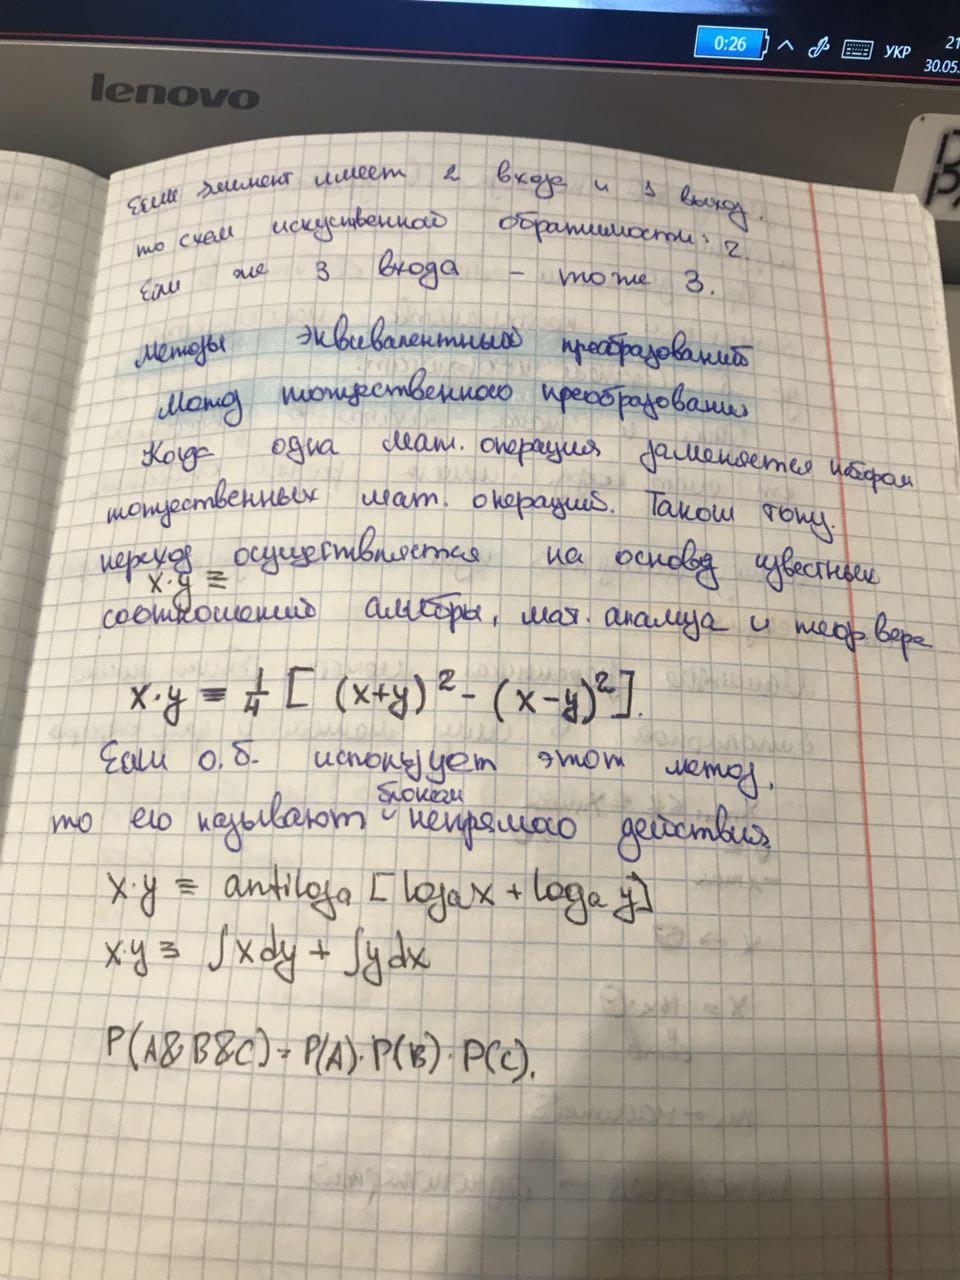 0:26
УКР
21
30.05.
lenovo
Если элемент имеет 2 входа и 1 выход,
то схем искуственной обратимости: 2.
Если же 3 входа – тоже 3.
Методы эквивалентных преобразований
Метод тотжественного преобразования
Когда одна мат. операция заменяется набором
тотжественных мат. операций. Такой
переход осуществляется на основе известных
x·y ≡
соотношений алгебры, мат. анализа и теор. вера
x·y ≡ 1/4 [ (x+y)² - (x-y)² ].
Если о.б. использует этот метод,
то его называют блоком непрямого действия.
x·y ≡ antilogₐ [logₐx + logₐy]
x·y ≡ ∫xdy + ∫ydx
P(A&B&C) = P(A)·P(B)·P(C).